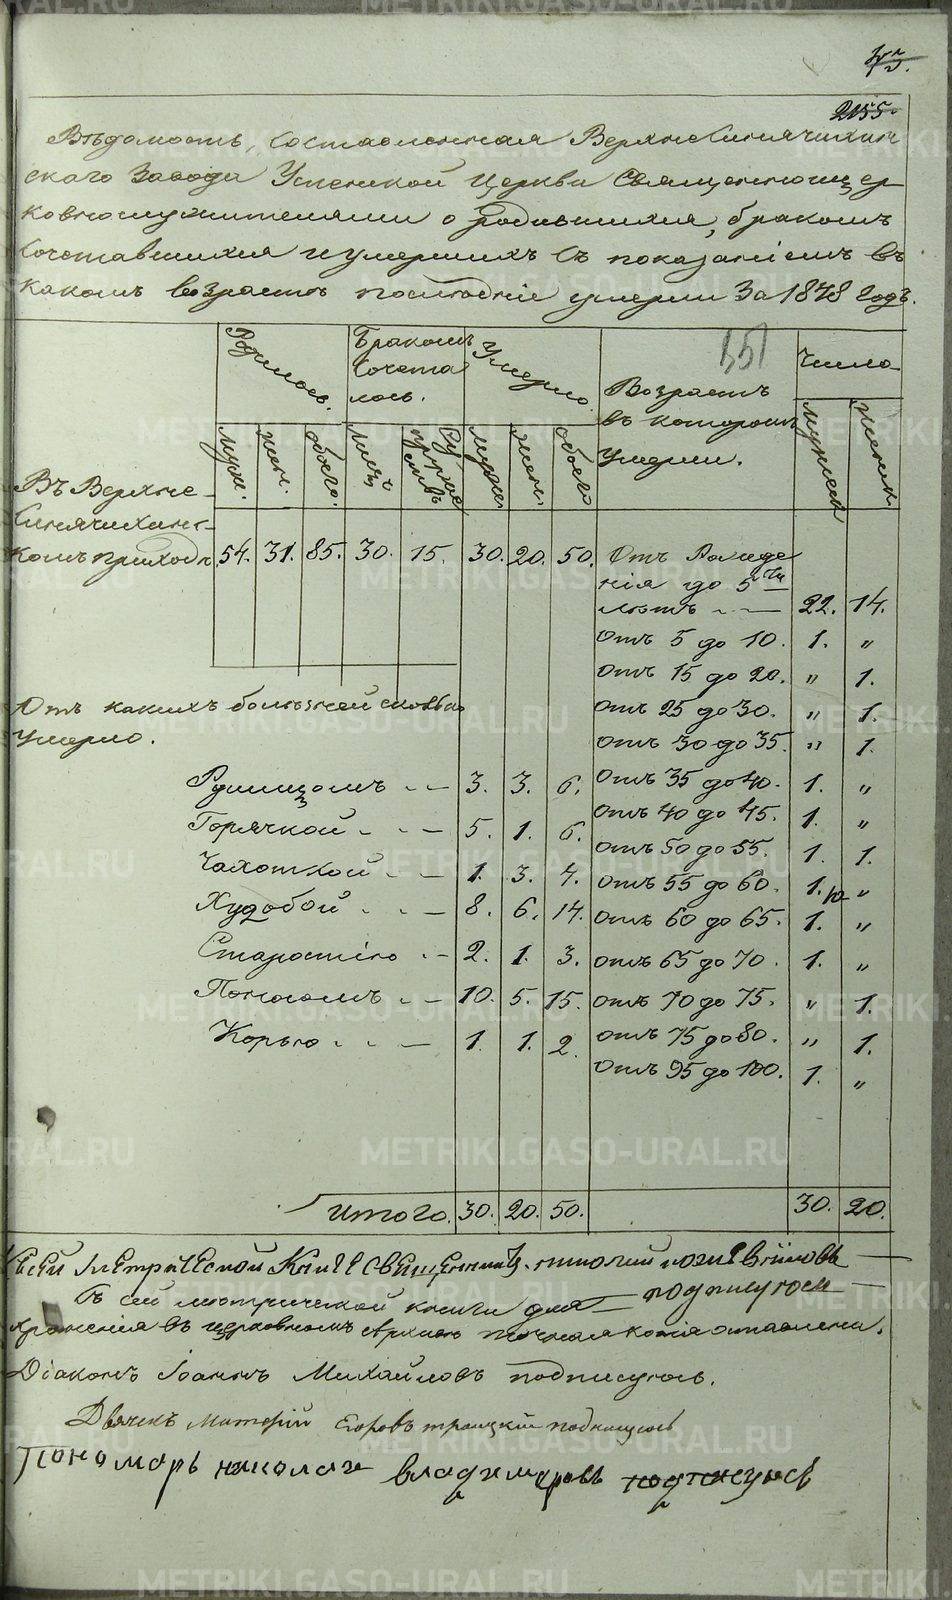 2155.
Вѣдомость, Составленная Верхнесинячихин
скаго Завода Успенской Церкви Священноцер
ковнослужителями о родившихся, бракомъ
Сочетавшихся и умершихъ Съ показаніемъ въ
какомъ возрастѣ послѣдніе умерли За 1878 годъ.
Родилось. Бракомъ Сочеталось. Умерло. Возрастъ въ которомъ умерли. Число
351
муж. жен. обоего. лицъ супружествъ муж. жен. обоего мужск женск
Въ Верхне-
синячихинс-
комъ приходѣ 54. 31. 85. 30. 15. 30. 20. 50. Отъ Рожде
нія до 5ти
лѣтъ 22. 14.
Отъ 5 до 10. 1. "
Отъ 15 до 20. " 1.
Отъ 25 до 30. " 1.
Отъ 30 до 35. " 1.
Отъ 35 до 40. 1. "
Отъ 40 до 45. 1. "
Отъ 50 до 55. 1. 1.
Отъ 55 до 60. 1. "
Отъ 60 до 65. 1. "
Отъ 65 до 70. 1. "
Отъ 70 до 75. " 1.
Отъ 75 до 80. " 1.
Отъ 95 до 100. 1. "
Отъ какихъ болѣзней сколько
Умерло.
Румицомъ 3. 3. 6.
Горячкой 5. 1. 6.
Чахоткой 1. 3. 4.
Худобой 8. 6. 14.
Старостію 2. 1. 3.
Поносомъ 10. 5. 15.
Корью 1. 1. 2.
Итого. 30. 20. 50. 30. 20.
Ксей Метрической Книге Священникъ
подписуюсь
Въ сей метрической книги для
храненія въ церковномъ Архивѣ точная копія оставлена.
Діаконъ Іоаннъ Михайловъ подписуюсь.
Дьячекъ Егоровъ троицкій подпишуюсь
Пономарь николай владимировъ подписуюсь
METRIKI.GASO-URAL.RU